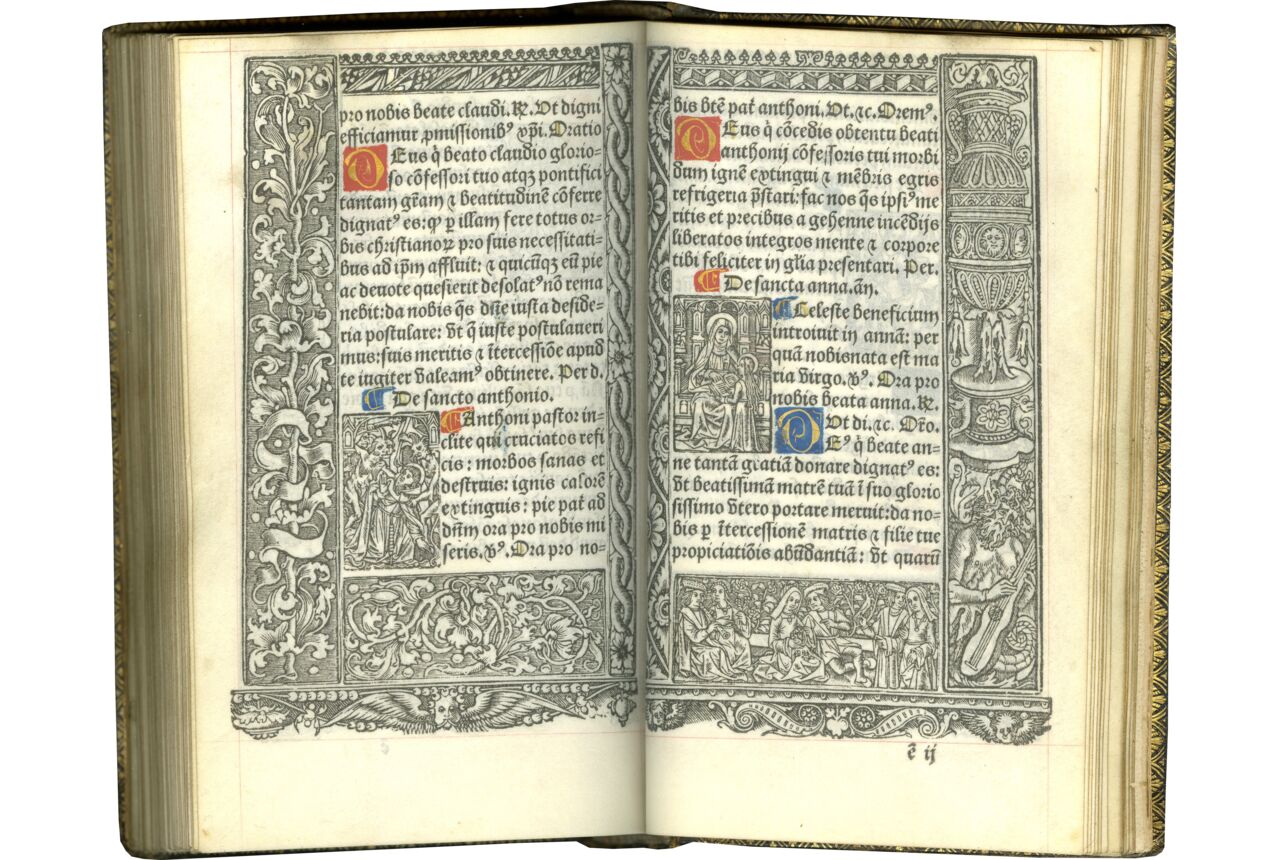 pro nobis beate claudi. ℟. Ut digni
efficiamur ꝓmissionibꝰ xp̄i. Oratio
DEus q̄ beato claudio glorio-
so cōfessori tuo atqꝫ pontifici
tantam gr̄am ⁊ beatitudinē cōferre
dignatꝰ es: qꝫ ꝑ illam fere totus or-
bis christianoꝝ pro suis necessitati-
bus ad ip̄m affluit: ⁊ quicūqꝫ eū pie
ac deuote quesierit desolatꝰ nō rema
nebit: da nobis q̄s dn̄e iusta deside-
ria postulare: vt q̄ iuste postulaueri
mus: suis meritis ⁊ ītercessiōe apud
te iugiter valeamꝰ obtinere. Per d.
De sancto anthonio.
Anthoni pastor in-
clite qui cruciatos refi
cis: morbos sanas et
destruis: ignis calorē
extinguis: pie pat̄ ad
dn̄m ora pro nobis mi
seris. ꝟꝰ. Ora pro no-
bis bt̄e pat̄ anthoni. Ut. ⁊c. Oremꝰ.
DEus q̄ cōcedis obtentu beati
anthonij cōfessoris tui morbi
dum ignē extingui ⁊ mēbris egris
refrigeria p̄stari: fac nos q̄s ipsiꝰ me
ritis et precibus a gehenne incēdijs
liberatos integros mente ⁊ corpore
tibi feliciter in gl̄ia presentari. Per.
De sancta anna. añ.
Celeste beneficium
introiuit in annā: per
quā nobis nata est ma
ria virgo. ꝟꝰ. Ora pro
nobis beata anna. ℟.
Ut di. ⁊c. Or̄o.
DEꝰ q̄ beate an-
ne tantā gratiā donare dignatꝰ es:
vt beatissimā matrē tuā ī suo glorio
sissimo vtero portare meruit: da no-
bis ꝑ ītercessionē matris ⁊ filie tue
propiciatiōis abūdantiā: vt quarū
ē ij